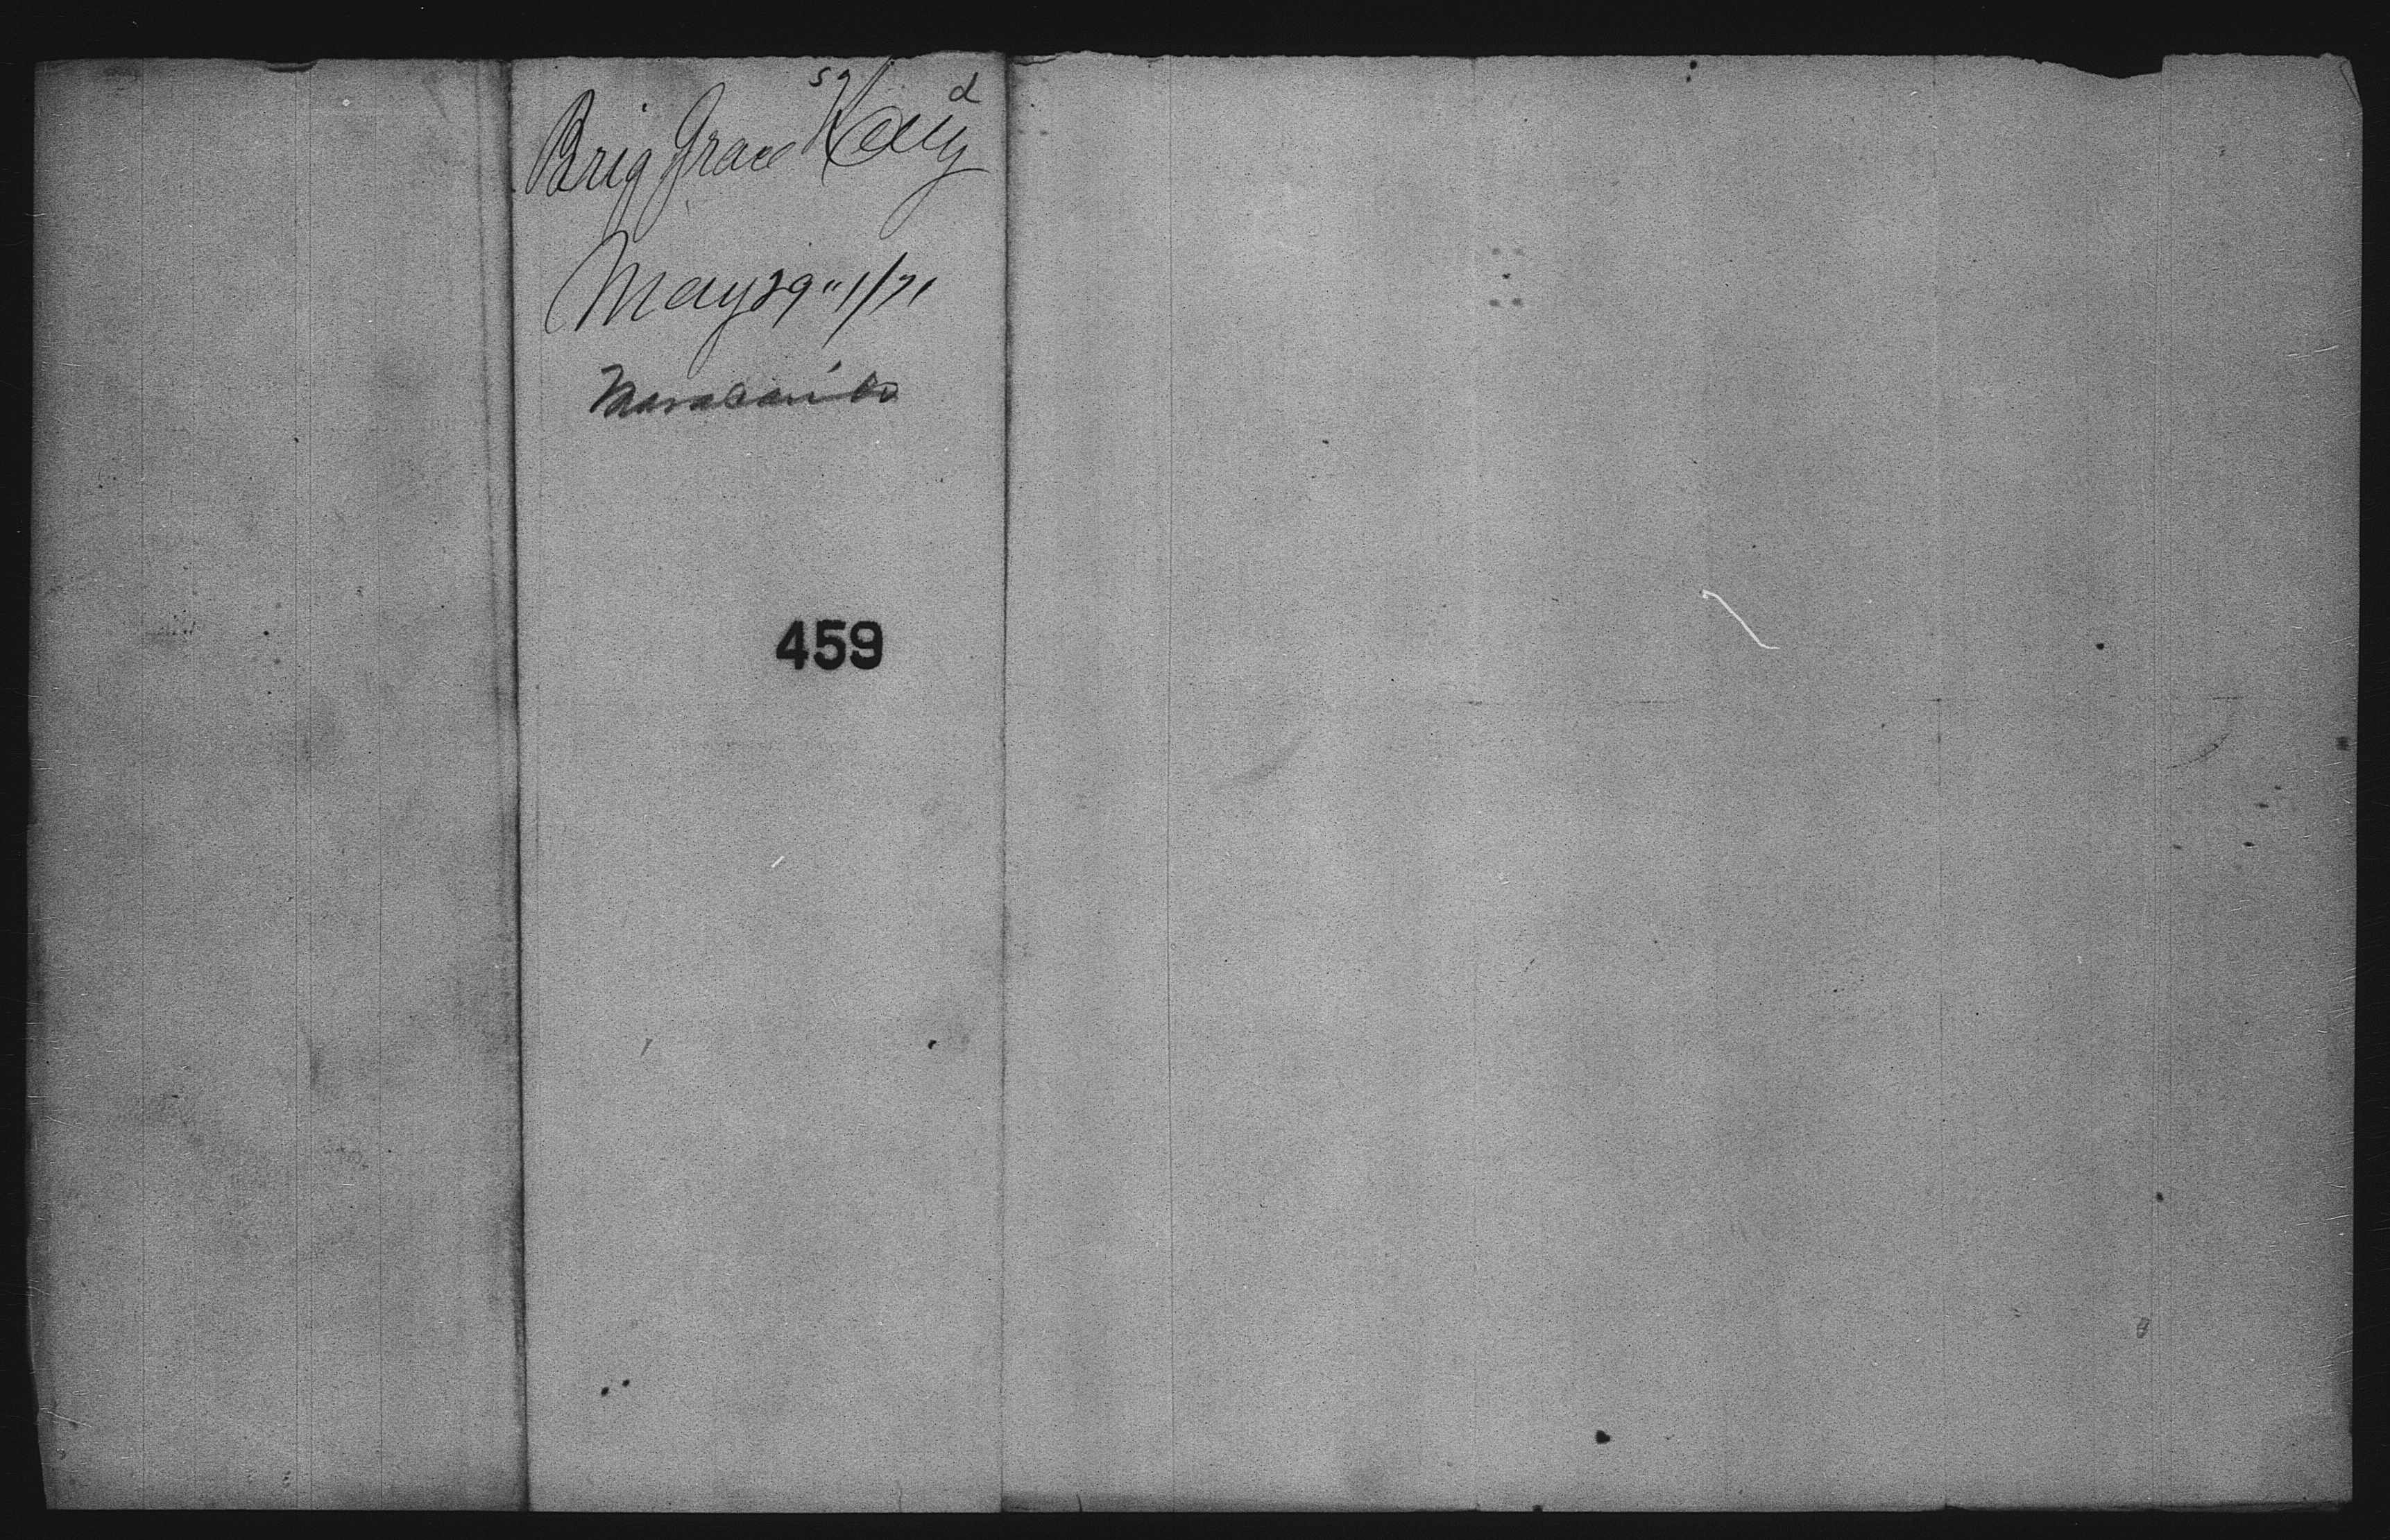 Brig Grace Kelly
May 29" 1/71
Maracaibo
459